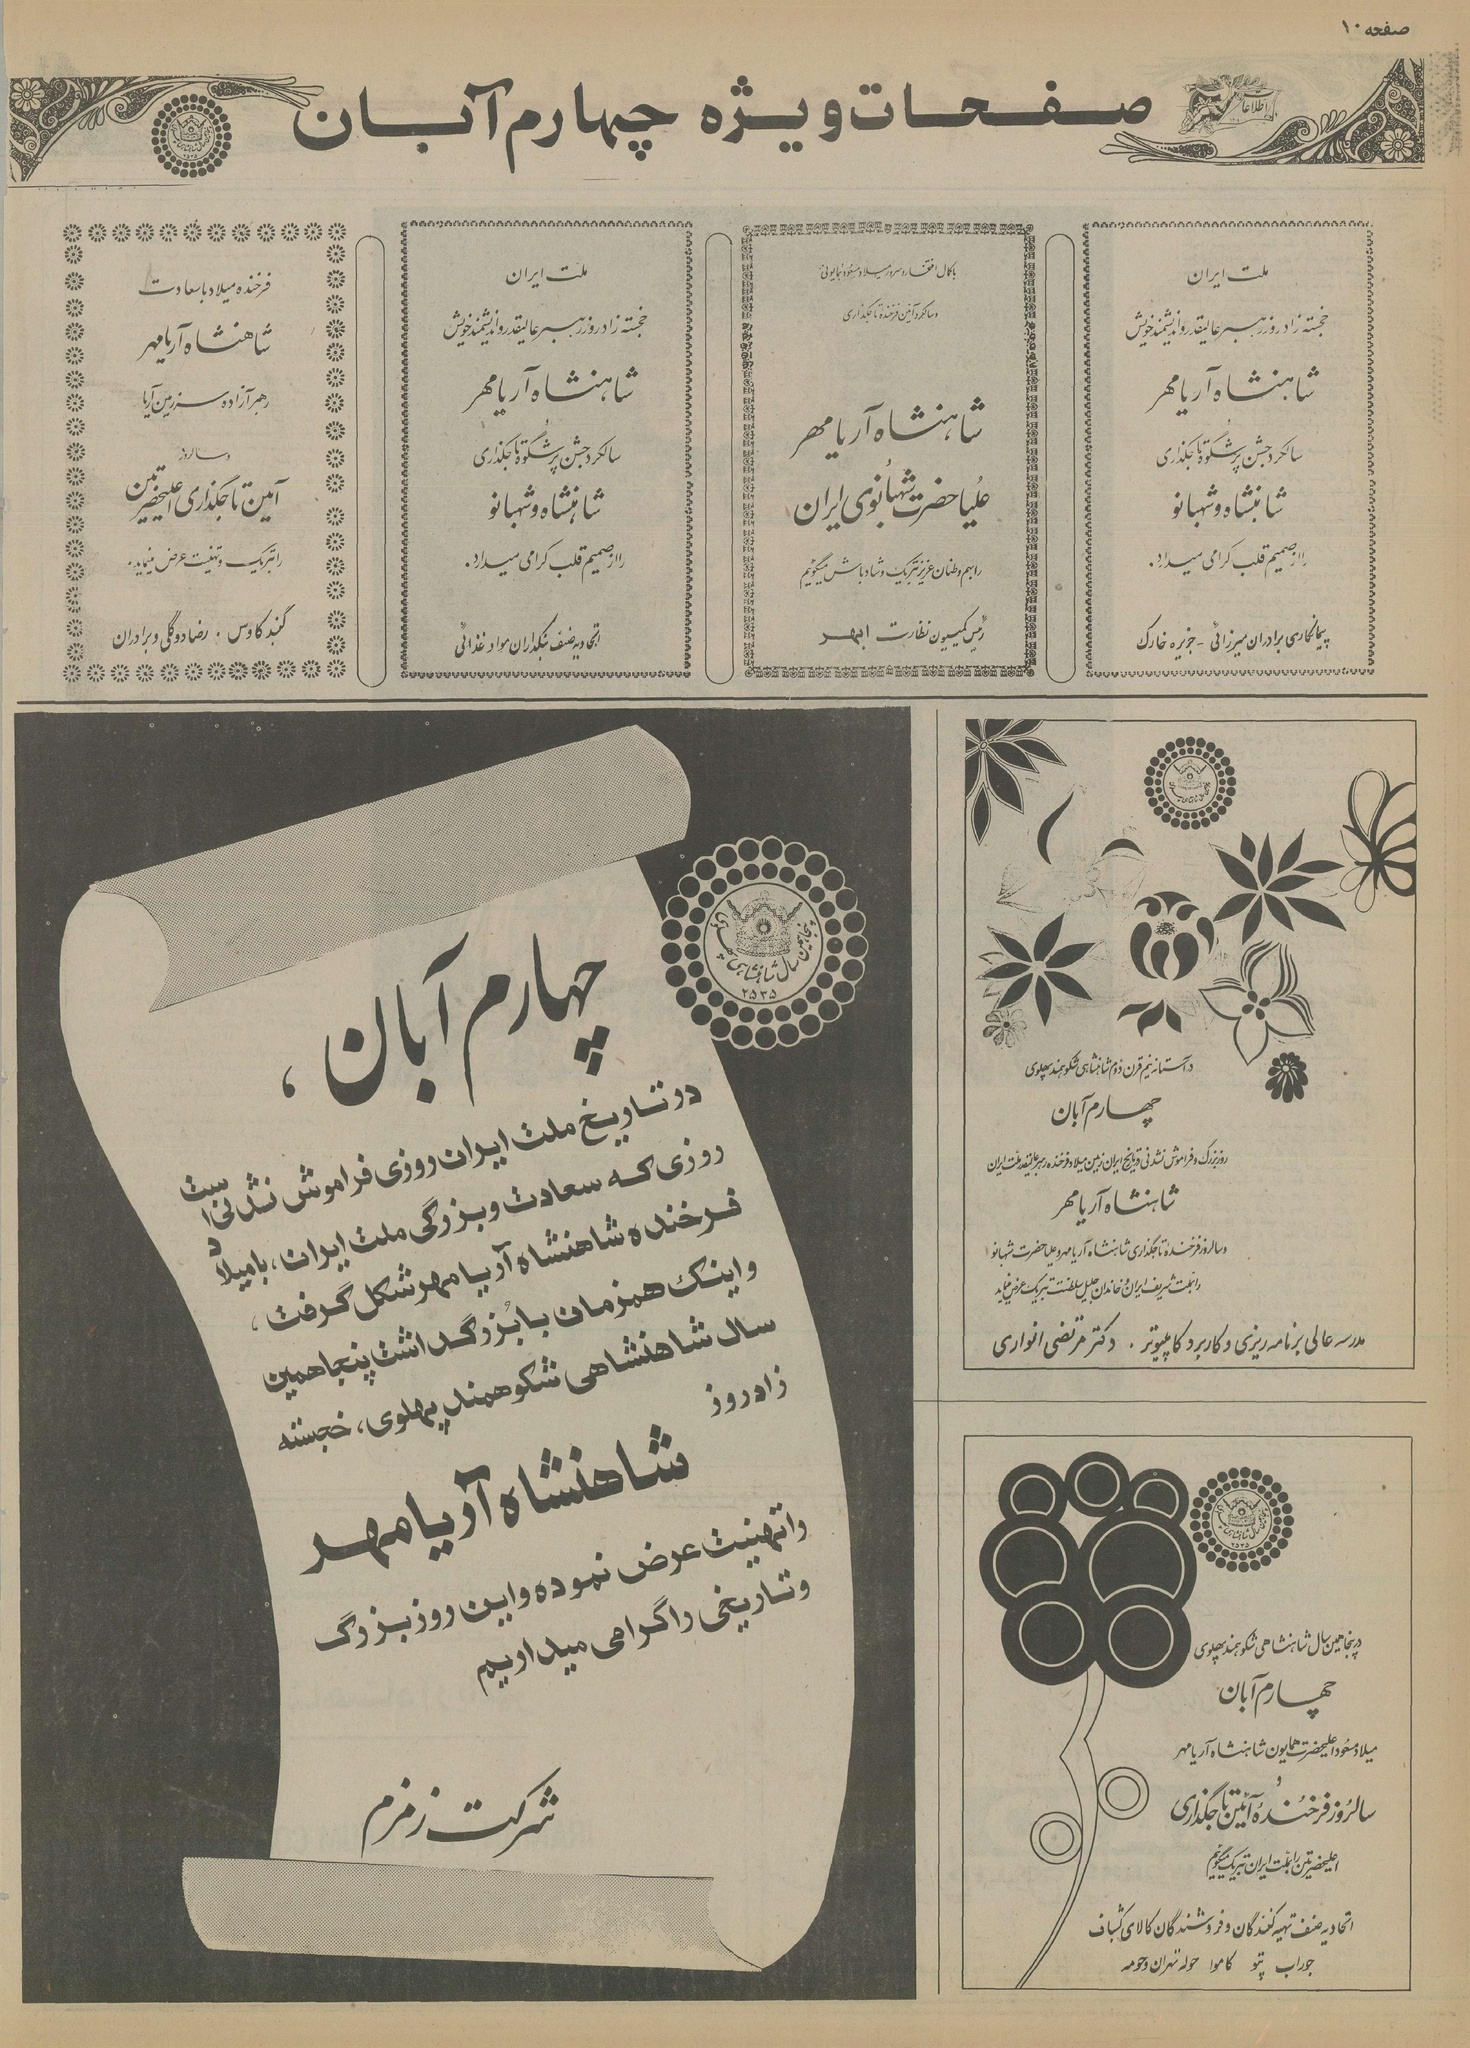 صفحه ۱۰
صفحات ویژه چهارم آبان
اطلاعات
ملت ایران
خجسته زادروز رهبر عالیقدر و اندیشمند خویش
شاهنشاه آریامهر
و
سالگرد جشن پرشکوه تاجگذاری
شاهنشاه و شهبانو
را از صمیم قلب گرامی میدارد.
پیمانکاری برادران میرزائی - جزیره خارک
با کمال افتخار و سرور میلاد مسعود همایونی
و سالگرد آئین فرخنده تاجگذاری
شاهنشاه آریامهر
علیاحضرت شهبانوی ایران
را بهم وطنان عزیز تبریک و شادباش میگوئیم
رئیس کمیسیون نظارت ابهر
ملت ایران
خجسته زادروز رهبر عالیقدر و اندیشمند خویش
شاهنشاه آریامهر
و
سالگرد جشن پرشکوه تاجگذاری
شاهنشاه و شهبانو
را از صمیم قلب گرامی میدارد.
اتحادیه صنف بنکداران مواد غذائی
فرخنده میلاد با سعادت
شاهنشاه آریامهر
رهبر آزاده سرزمین آریا
و سالروز
آئین تاجگذاری اعلیحضرتین
را تبریک و تهنیت عرض مینماید.
گنبد کاوس . رضا دوگلی و برادران
در آستانه نیم قرن دوم شاهنشاهی شکوهمند پهلوی
چهارم آبان
روز بزرگ و فراموش نشدنی و تاریخ ایران زمین میلاد فرخنده رهبر عالیقدر ملت ایران
شاهنشاه آریامهر
و سالروز فرخنده تاجگذاری شاهنشاه آریامهر و علیاحضرت شهبانو
را بملت شریف ایران و خاندان جلیل سلطنت تبریک عرض مینماید
مدرسه عالی برنامه ریزی و کاربرد کامپیوتر . دکتر مرتضی انواری
پنجاهمین سال شاهنشاهی پهلوی
۲۵۳۵
چهارم آبان ،
در تاریخ ملت ایران روزی فراموش نشدنی است
روزی که سعادت و بزرگی ملت ایران، با میلاد
فرخنده شاهنشاه آریامهر شکل گرفت ،
و اینک همزمان با بزرگداشت پنجاهمین
سال شاهنشاهی شکوهمند پهلوی، خجسته
زادروز
شاهنشاه آریامهر
را تهنیت عرض نموده و این روز بزرگ
و تاریخی را گرامی میداریم
شرکت زمزم
۲۵۳۵
در پنجاهمین سال شاهنشاهی شکوهمند پهلوی
چهارم آبان
میلاد مسعود اعلیحضرت همایون شاهنشاه آریامهر
و
سالروز فرخنده آئین تاجگذاری
اعلیحضرتین را بملت ایران تبریک میگوئیم
اتحادیه صنف تهیه کنندگان و فروشندگان کالای کشباف
جوراب پتو کاموا حوله تهران و حومه